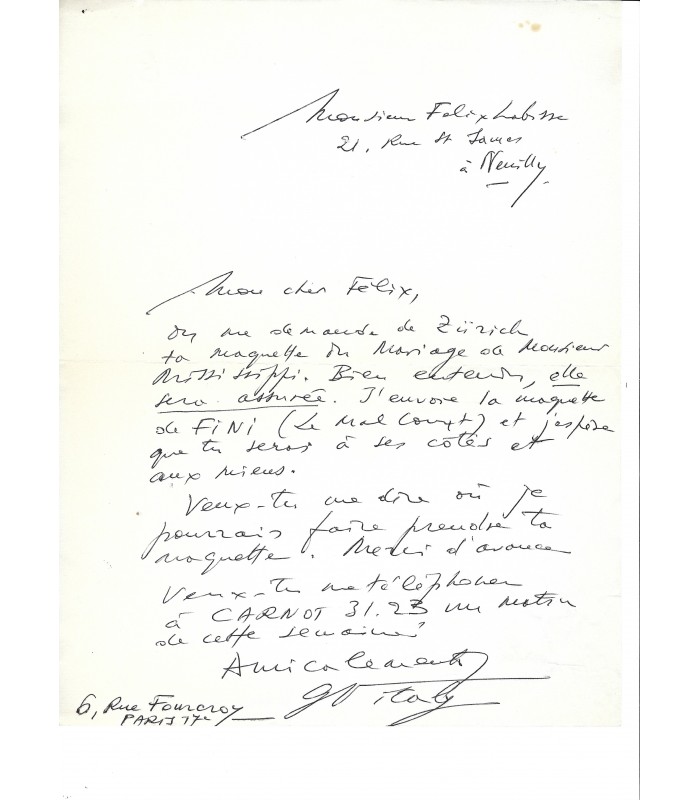 Monsieur Felix Labisse
21, Rue St James
à Neuilly
Mon cher Félix,
on me demande de Zürich
ta maquette du Mariage de Monsieur
Mississippi. Bien entendu, elle
sera assurée. J'envoie la maquette
de FiNi (Le Mal Court) et j'espère
que tu seras à ses côtés et
aux miens.
Veux-tu me dire où je
pourrais faire prendre ta
maquette. Merci d'avance
Veux-tu me téléphoner
à CARNOT 31.23 un matin
de cette semaine?
Amicalement
G Vitaly
6, Rue Fourcroy
PARIS 17e